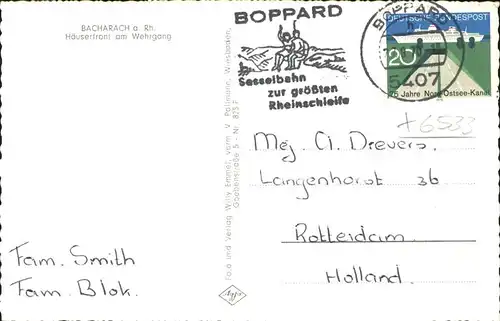 BACHARACH a. Rh.
Häuserfront am Wehrgang
BOPPARD
Sesselbahn
zur größten
Rheinschleife
BOPPARD
5407
DEUTSCHE BUNDESPOST
20
75 Jahre Nord-Ostsee-Kanal
+6533
Mej A. Drevers.
Langenhorst 36
Rotterdam.
Holland.
Fam. Smith
Fam. Blok.
Foto und Verlag Willy Emmel, vorm. V. Wiesbaden,
Goebenstraße 5 - Nr. 825 F
Agfa